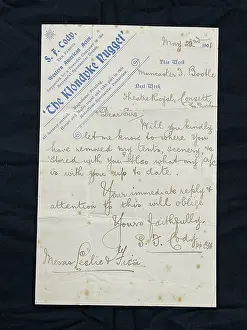 S. F. Cody,
Western American Actor
'The Klondyke Nugget'
May 22nd 1901
This Week
Muncaster T. Bootle
Next Week
Theatre Royal, Consett
Dear Sirs
Will you kindly
let me know to where you
have removed my tents, scenery, etc
stored with you. Also what my a/c
is with you up to date.
Your immediate reply &
attention to this will oblige
Yours faithfully
S. F. Cody
Messrs Leslie &